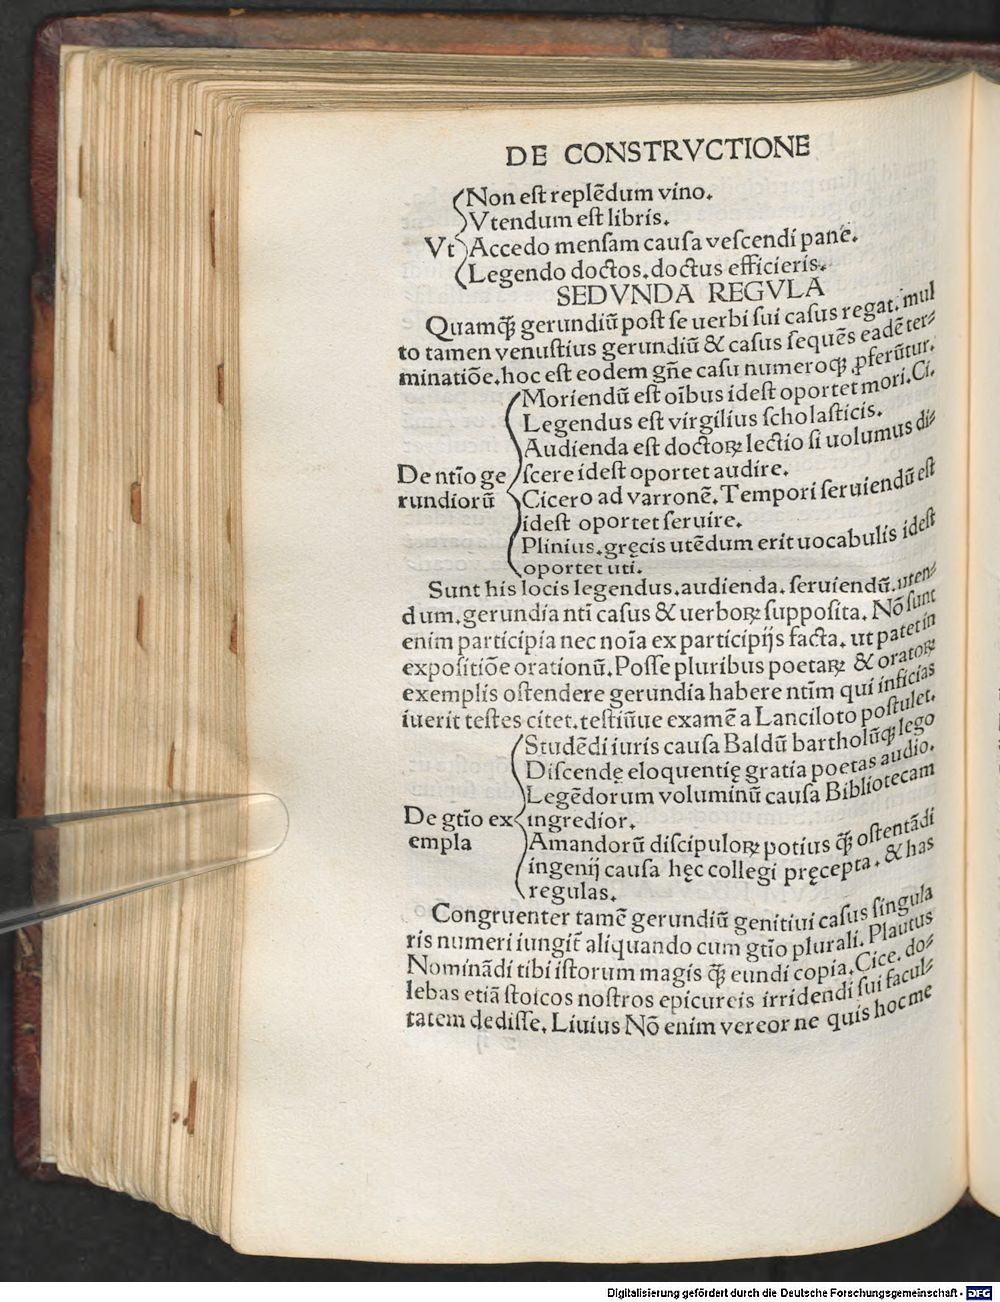 DE CONSTRVCTIONE
Non eſt replēdum vino.
Vtendum eſt libris.
Vt Accedo menſam cauſa veſcendi pane.
Legendo doctos. doctus efficieris.
SEDVNDA REGVLA
Quamꝗ̃ gerundiū poſt ſe uerbi ſui caſus regat. mul
to tamen venuſtius gerundiū & caſus ſequēs eadē ter⸗
minatiōe. hoc eſt eodem gñe caſu numeroqꝫ ꝓferūtur.
Moriendū eſt oībus ideſt oportet mori. Ci.
Legendus eſt virgilius ſcholaſticis.
Audienda eſt doctoꝝ lectio ſi uolumus di⸗
ſcere ideſt oportet audire.
De ntīo ge
rundiorū
Cicero ad varronē. Tempori ſeruiendū eſt
ideſt oportet ſeruire.
Plinius. gręcis utēdum erit uocabulis ideſt
oportet uti.
Sunt his locis legendus. audienda. ſeruiendū. uten⸗
dum. gerundia nti caſus & uerboꝝ ſuppoſita. Nō ſunt
enim participia nec noīa ex participijs facta. ut patet in
expoſitiōe orationū. Poſſe pluribus poetaꝝ & oratoꝝ
exemplis oſtendere gerundia habere ntīm qui inficias
iuerit teſtes citet. teſtiūue examē a Lanciloto poſtulet.
Studēdi iuris cauſa Baldū bartholūqꝫ lego
Diſcendę eloquentię gratia poetas audio.
Legēdorum voluminū cauſa Bibliotecam
De gtīo ex ingredior.
empla Amandorū diſcipuloꝝ potius ꝗ̃ oſtentādi
ingenij cauſa hęc collegi pręcepta. & has
regulas.
Congruenter tamē gerundiū genitiui caſus ſingula
ris numeri iungit̃ aliquando cum gtīo plurali. Plautus
Nominādi tibi iſtorum magis ꝗ̃ eundi copia. Cice. do⸗
lebas etiā ſtoicos noſtros epicureis irridendi ſui facul⸗
tatem dediſſe. Liuius Nō enim vereor ne quis hoc me
Digitalisierung gefördert durch die Deutsche Forschungsgemeinschaft - DFG